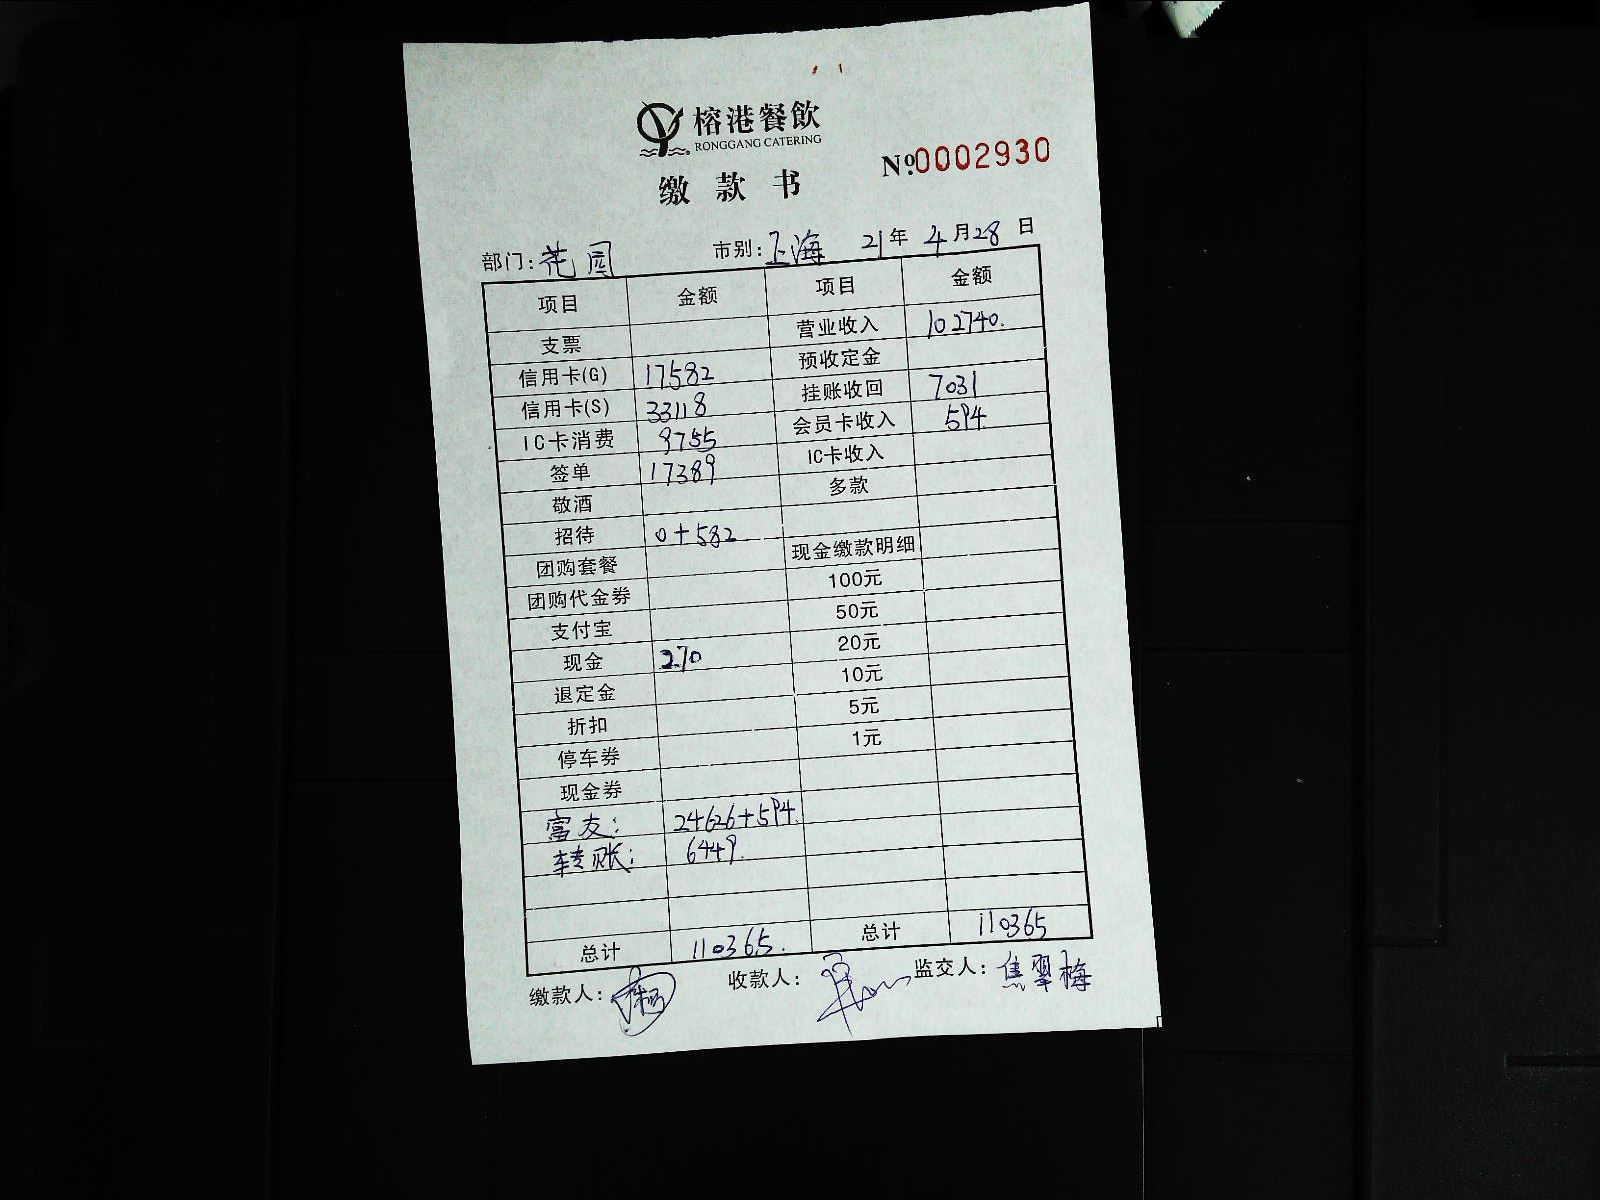 榕港餐飲
RONGGANG CATERING
缴款书
№0002930
部门:花园 市别:上海 21年4月28日
项目 金额 项目 金额
支票 营业收入 102740.
信用卡(G) 17582 预收定金
信用卡(S) 33118 挂账收回 7031
IC卡消费 9755 会员卡收入 594
签单 17389 IC卡收入
敬酒 多款
招待 0+582
团购套餐 现金缴款明细
团购代金券 100元
支付宝 50元
现金 270 20元
退定金 10元
折扣 5元
停车券 1元
现金券
富友: 24626+594.
转账: 6449.
总计 110365. 总计 110365
缴款人: 收款人: 监交人:焦翠梅